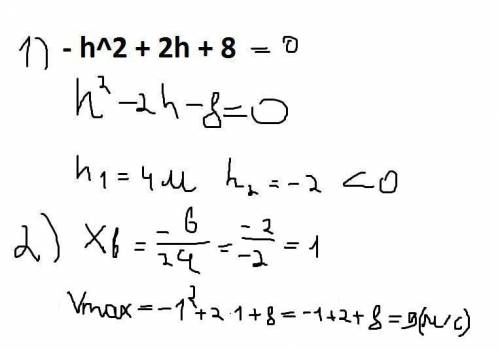 1) - h^2 + 2h + 8 = 0
h² - 2h - 8 = 0
h₁ = 4 м h₂ = -2 < 0
2) Xв = -в/2a = -2/-2 = 1
Vmax = -1² + 2·1 + 8 = -1 + 2 + 8 = 9(м/с)